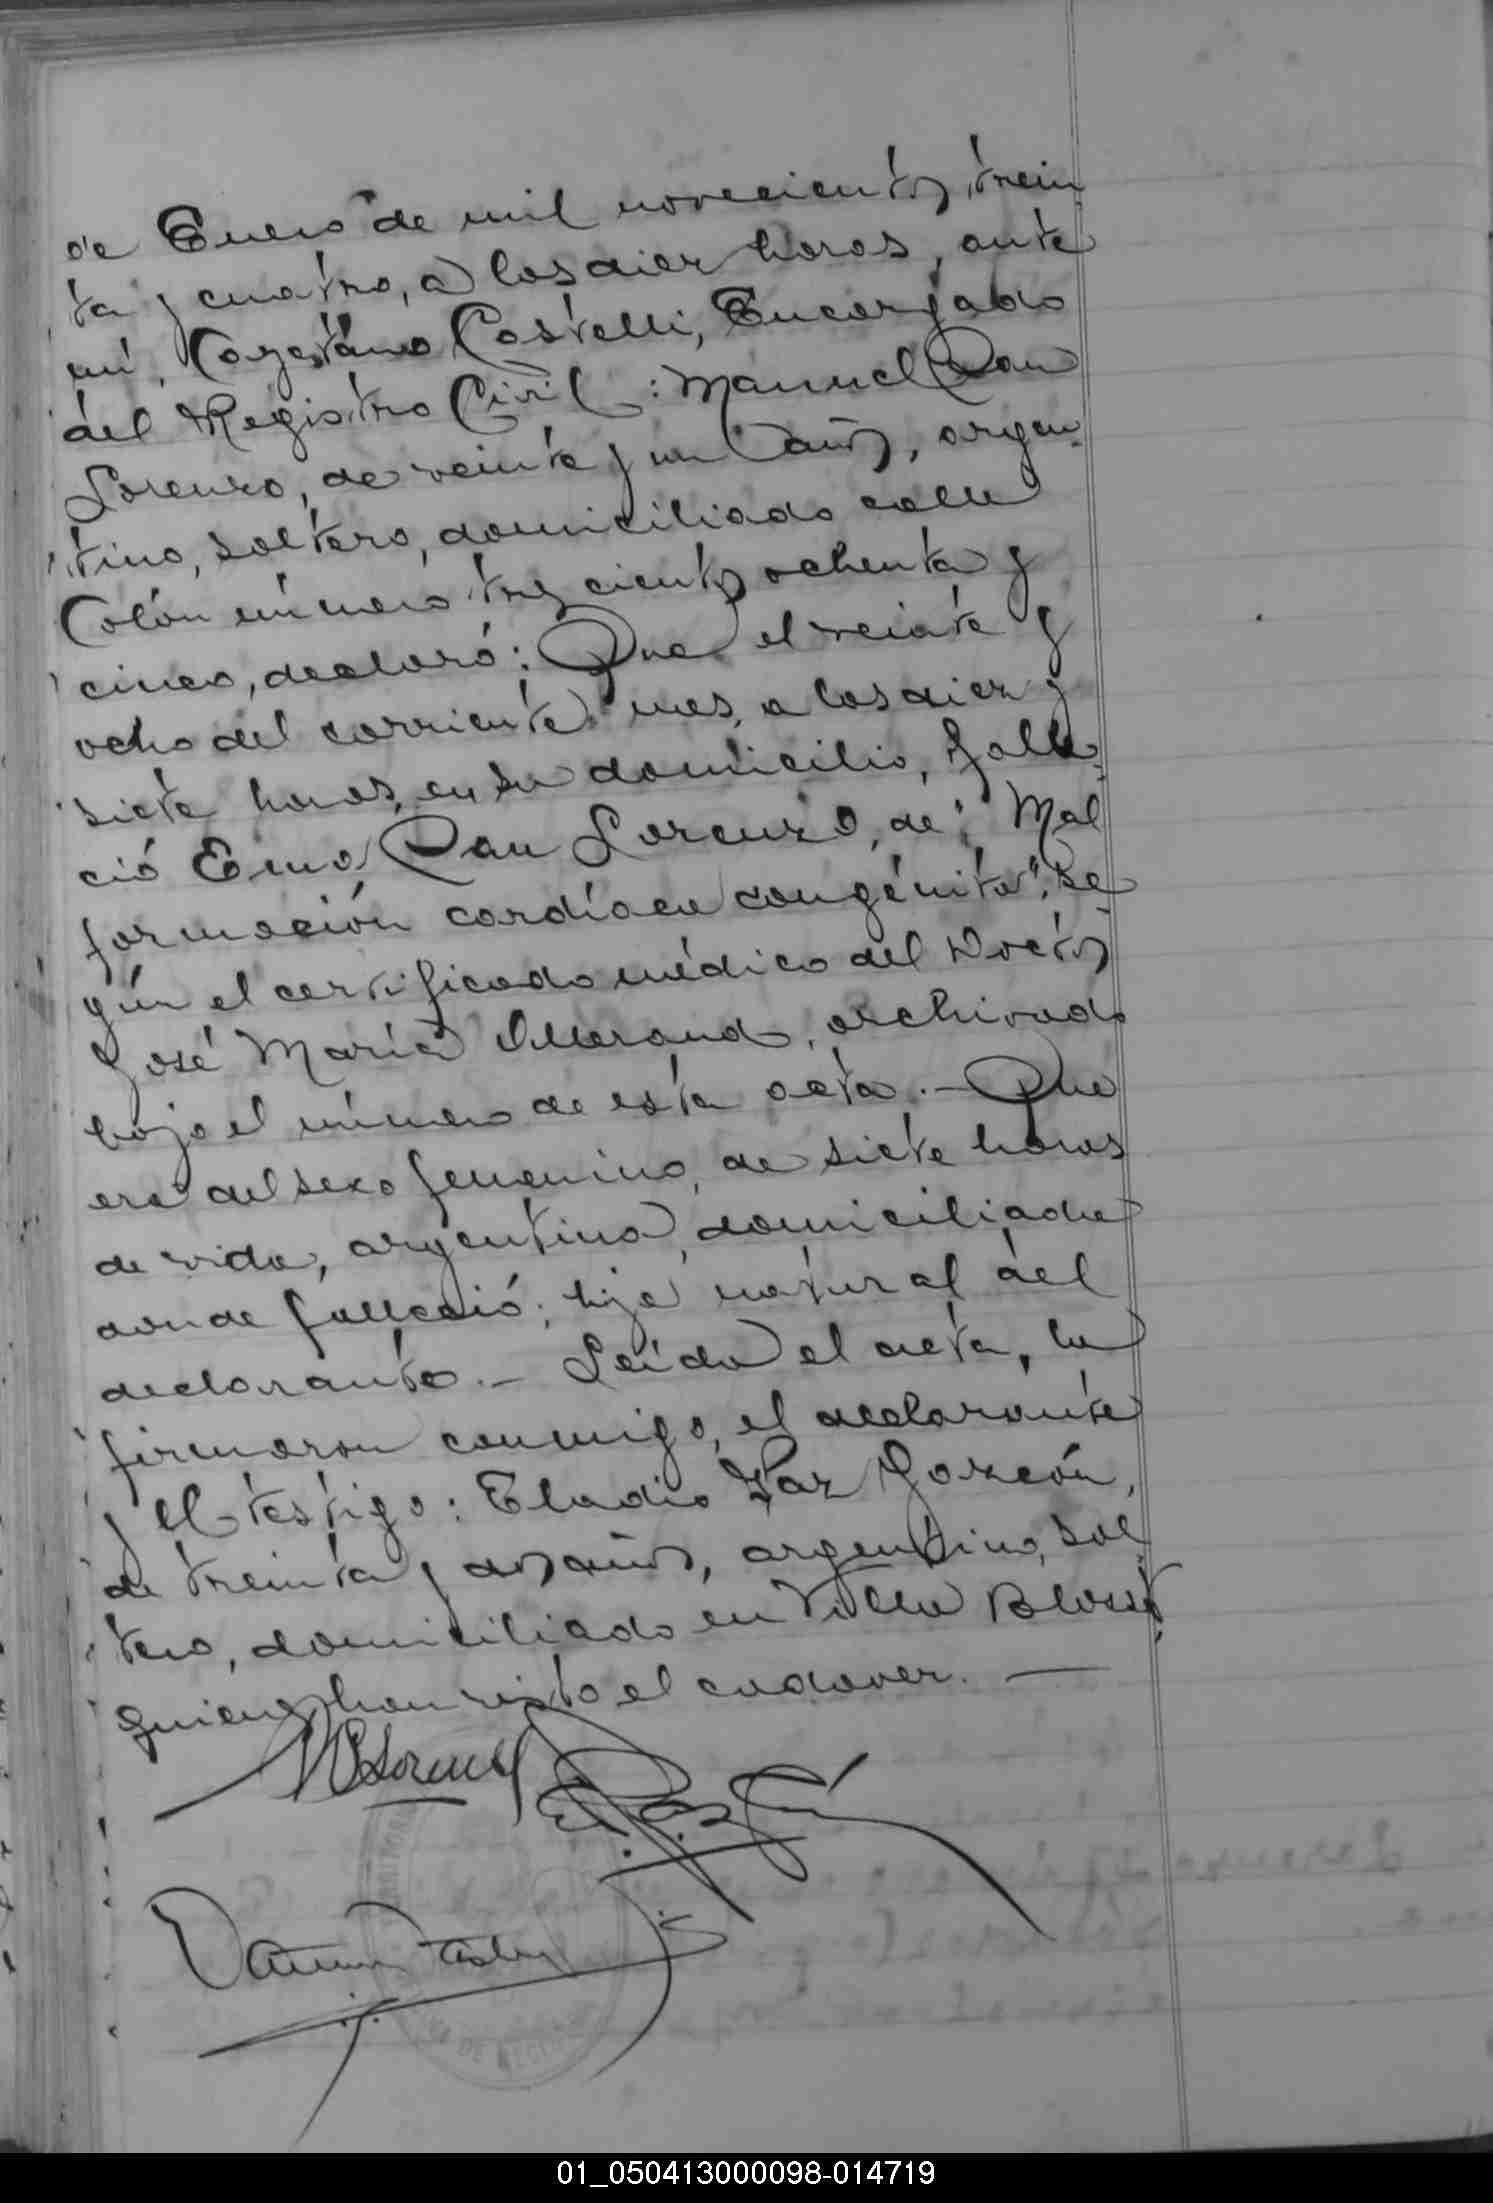 de Enero de mil novecientos trein
ta y cuatro, a las diez horas, ante
mí, Cayetano Costelli, Encargado
del Registro Civil: Manuel San
Lorenzo, de veinte y un años, argen
tino, soltero, domiciliado calle
Colón número trescientos ochenta y
cinco, declaró: Que el veinte y
ocho del corriente mes, a las diez y
siete horas, en su domicilio, falle
ció Ema San Lorenzo, de "Mal
formación cardíaca congénita", se
gún el certificado médico del Doctor
José María, archivado
bajo el número de esta acta.— Que
era del sexo femenino, de siete horas
de vida, argentina, domiciliada
donde falleció; hija natural del
declarante.— Leída el acta, la
firmaron conmigo, el declarante
y el testigo: Eladio Paz Garzón,
de treinta y dos años, argentino, sol
tero, domiciliado en Villa
quienes han visto el cadaver.—
DE
01_050413000098-014719